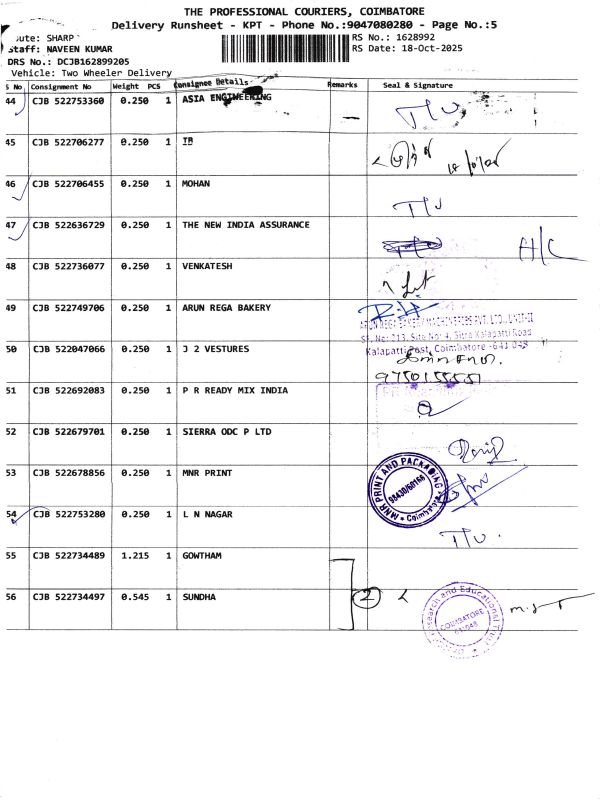 THE PROFESSIONAL COURIERS, COIMBATORE
Delivery Runsheet - KPT - Phone No.:9047080280 - Page No.:5
oute: SHARP
Staff: NAVEEN KUMAR
DRS No.: DCJB162899205
Vehicle: Two Wheeler Delivery
RS No.: 1628992
RS Date: 18-Oct-2025
S No Consignment No Weight PCS Consignee Details Remarks Seal & Signature
44 CJB 522753360 0.250 1 ASIA ENGINEERING
45 CJB 522706277 0.250 1 IB
46 CJB 522706455 0.250 1 MOHAN
47 CJB 522636729 0.250 1 THE NEW INDIA ASSURANCE A/C
48 CJB 522736077 0.250 1 VENKATESH
49 CJB 522749706 0.250 1 ARUN REGA BAKERY
ARUN REGA BAKERY MACHINERIES PVT. LTD., UNIT-II
SF. No: 213, Site No: 4, Sitra Kalapatti Road
Kalapatti Post, Coimbatore -641 048
50 CJB 522047066 0.250 1 J 2 VESTURES
51 CJB 522692083 0.250 1 P R READY MIX INDIA
52 CJB 522679701 0.250 1 SIERRA ODC P LTD
53 CJB 522678856 0.250 1 MNR PRINT
MNR PRINT AND PACKAGING
98430/60166
Coimbatore
54 CJB 522753280 0.250 1 L N NAGAR
55 CJB 522734489 1.215 1 GOWTHAM
56 CJB 522734497 0.545 1 SUNDHA 2
Research and Educational Trust
COIMBATORE